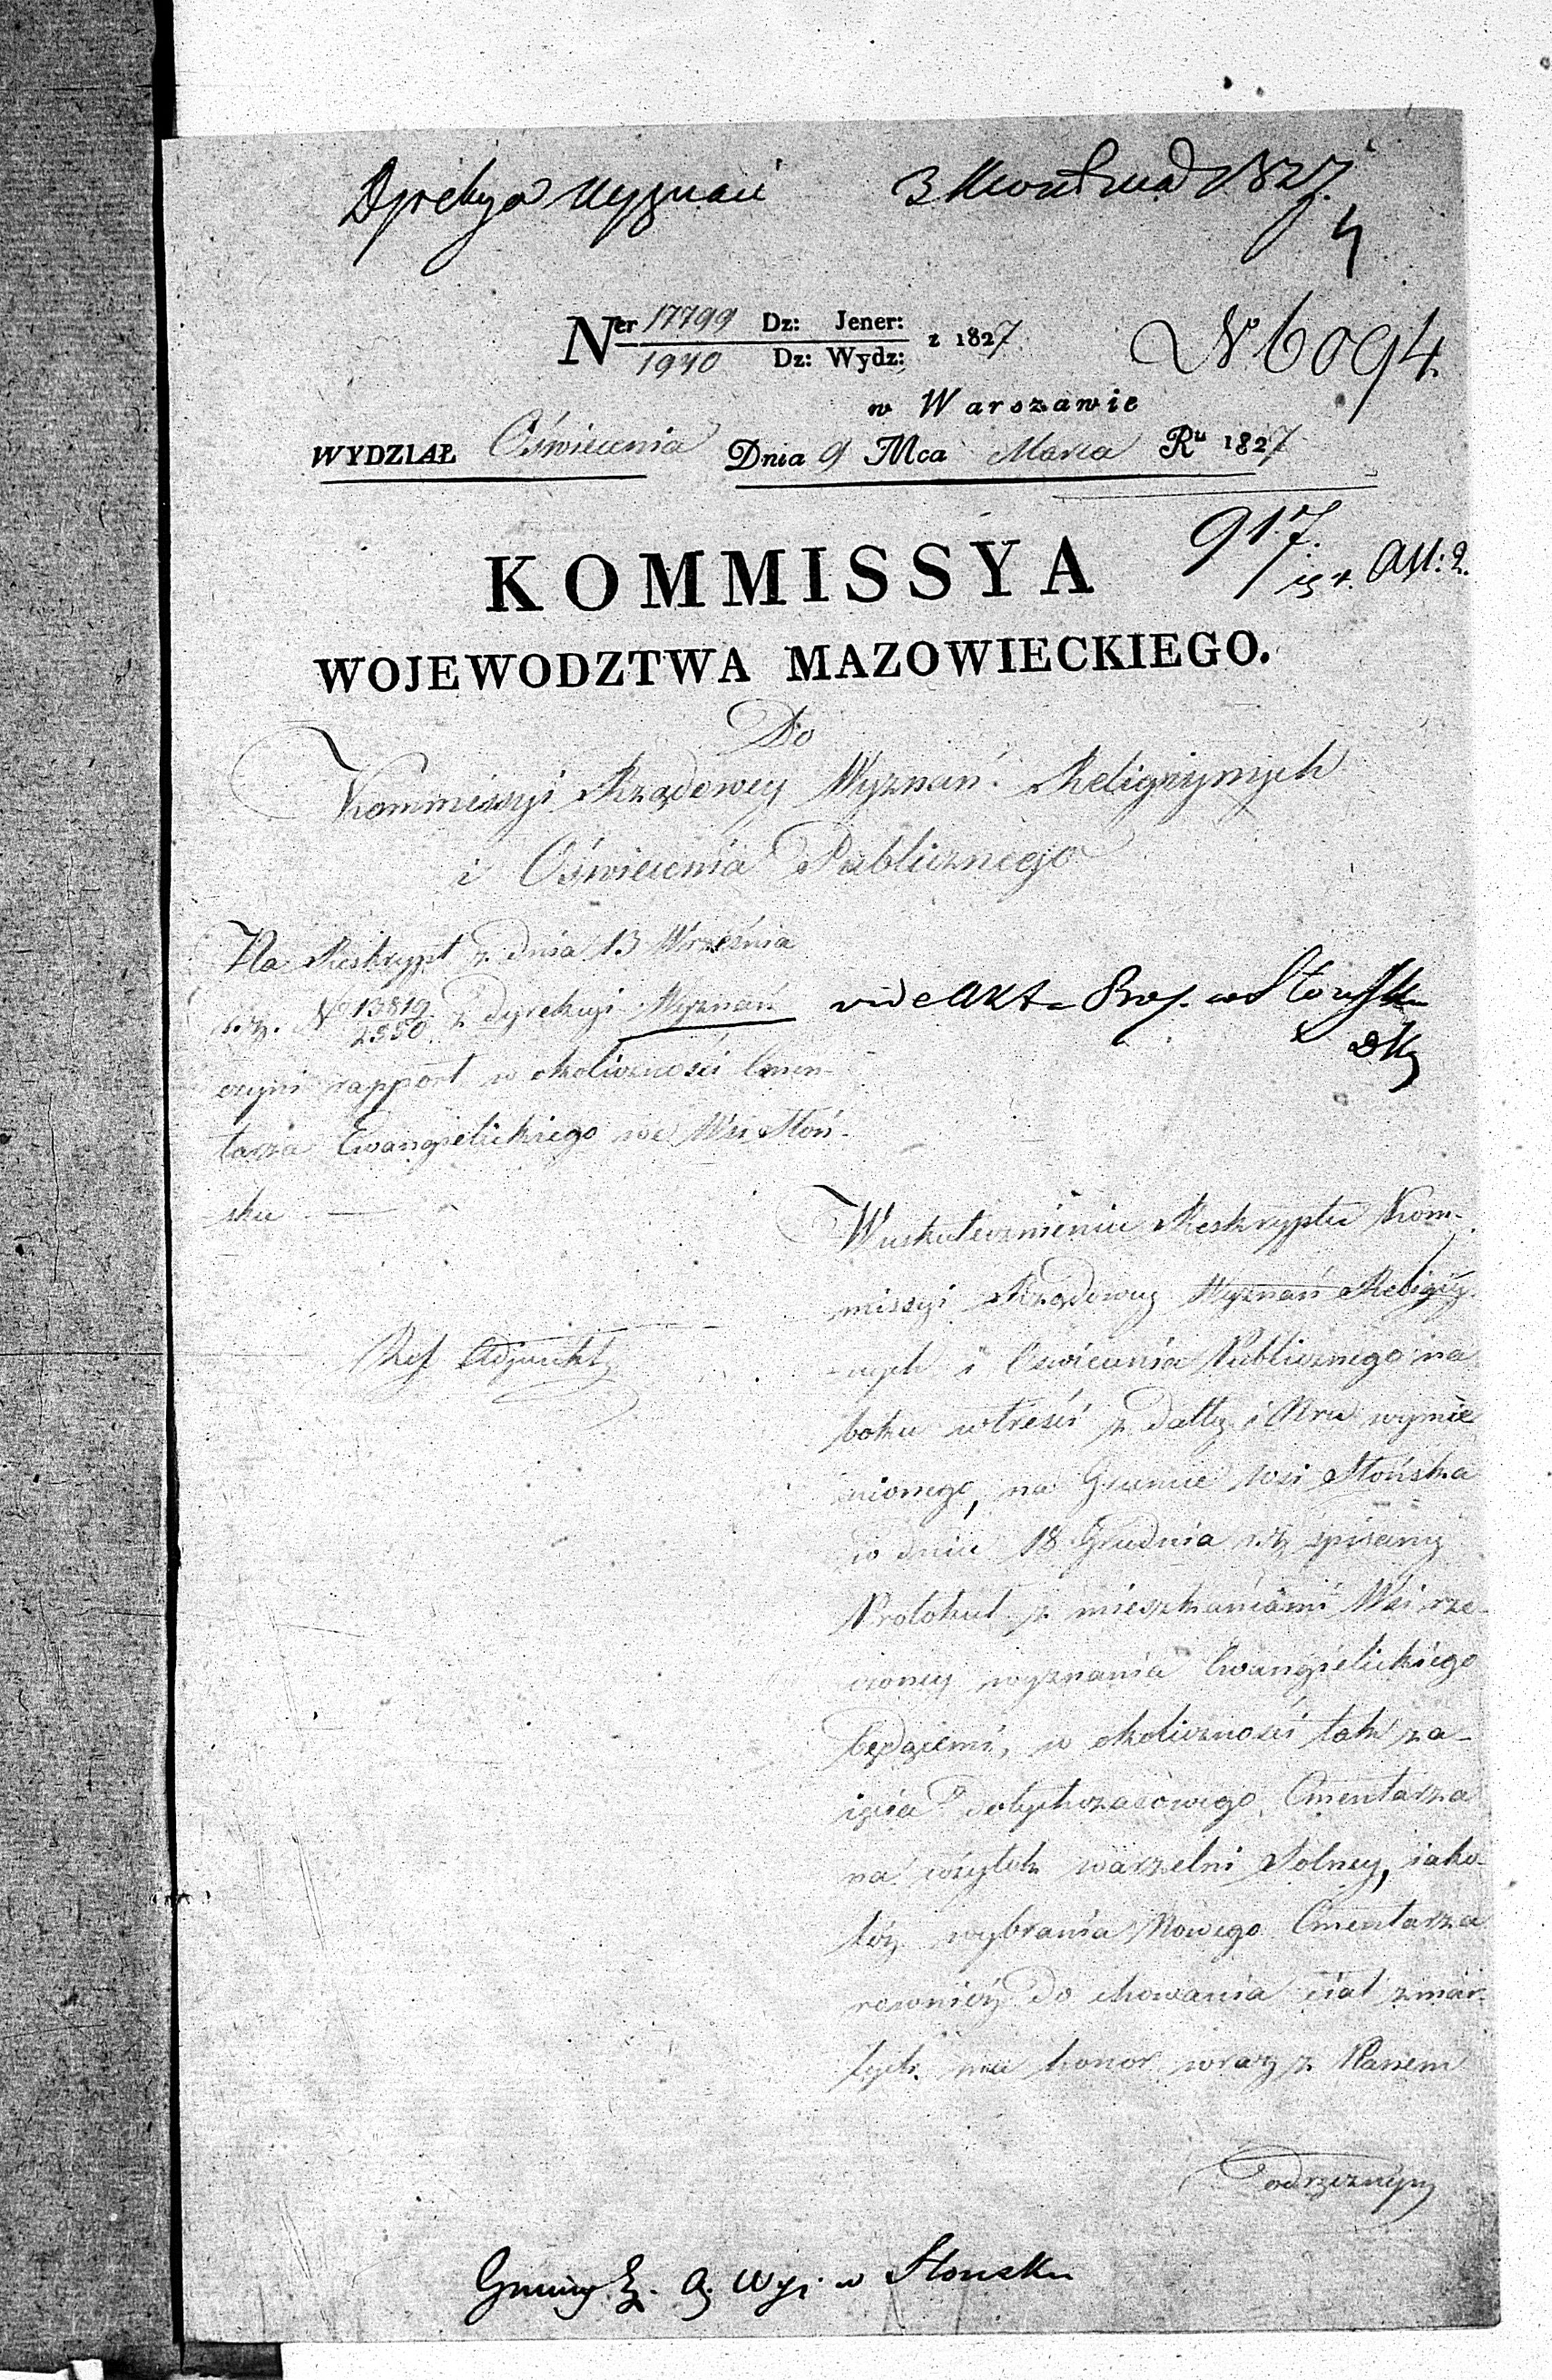 Dyrekcya Wyznań 3 Kwietnia 1827
4
Ner 17799 Dz: Jener:
1940 Dz: Wydz: z 1827
N 6094.
w Warszawie
WYDZIAŁ Oświecenia Dnia 9 Mca Marca Ru 1827
917.
KOMMISSYA
WOJEWODZTWA MAZOWIECKIEGO.
Do
Kommissyi Rządowey Wyznań Religiynych
i Oświecenia Publicznego
Na Reskrypt z dnia 13 Września
r. z. N 13819/2550 z Dyrekcyi Wyznań
czyni rapport w okoliczności Cmen-
tarza Ewangielickiego we Wsi Słoń-
sku
vide Akta
Ref. Adjunkt
W uskutecznieniu Reskryptu Kom-
missyi Rządowey Wyznań Religiy-
-nych i Oświecenia Publicznego na
boku w treści z datty i Nru wymie
nionego, na Gruncie Wsi Słońska
w dniu 18 Grudnia r. z. spisany
Protokuł z mieszkańcami Wsi rze-
czoney wyznania Ewangielickiego
będącemi, w okoliczności tak za-
ięcia dotychczasowego Cmentarza
na użytek warzelni Solney, iako-
też wybrania Nowego Cmentarza
rownież do chowania ciał zmar-
łych ma honor wraz z Planem
Podrzecznym
Gminy E. A. Wyz. w Słonsku